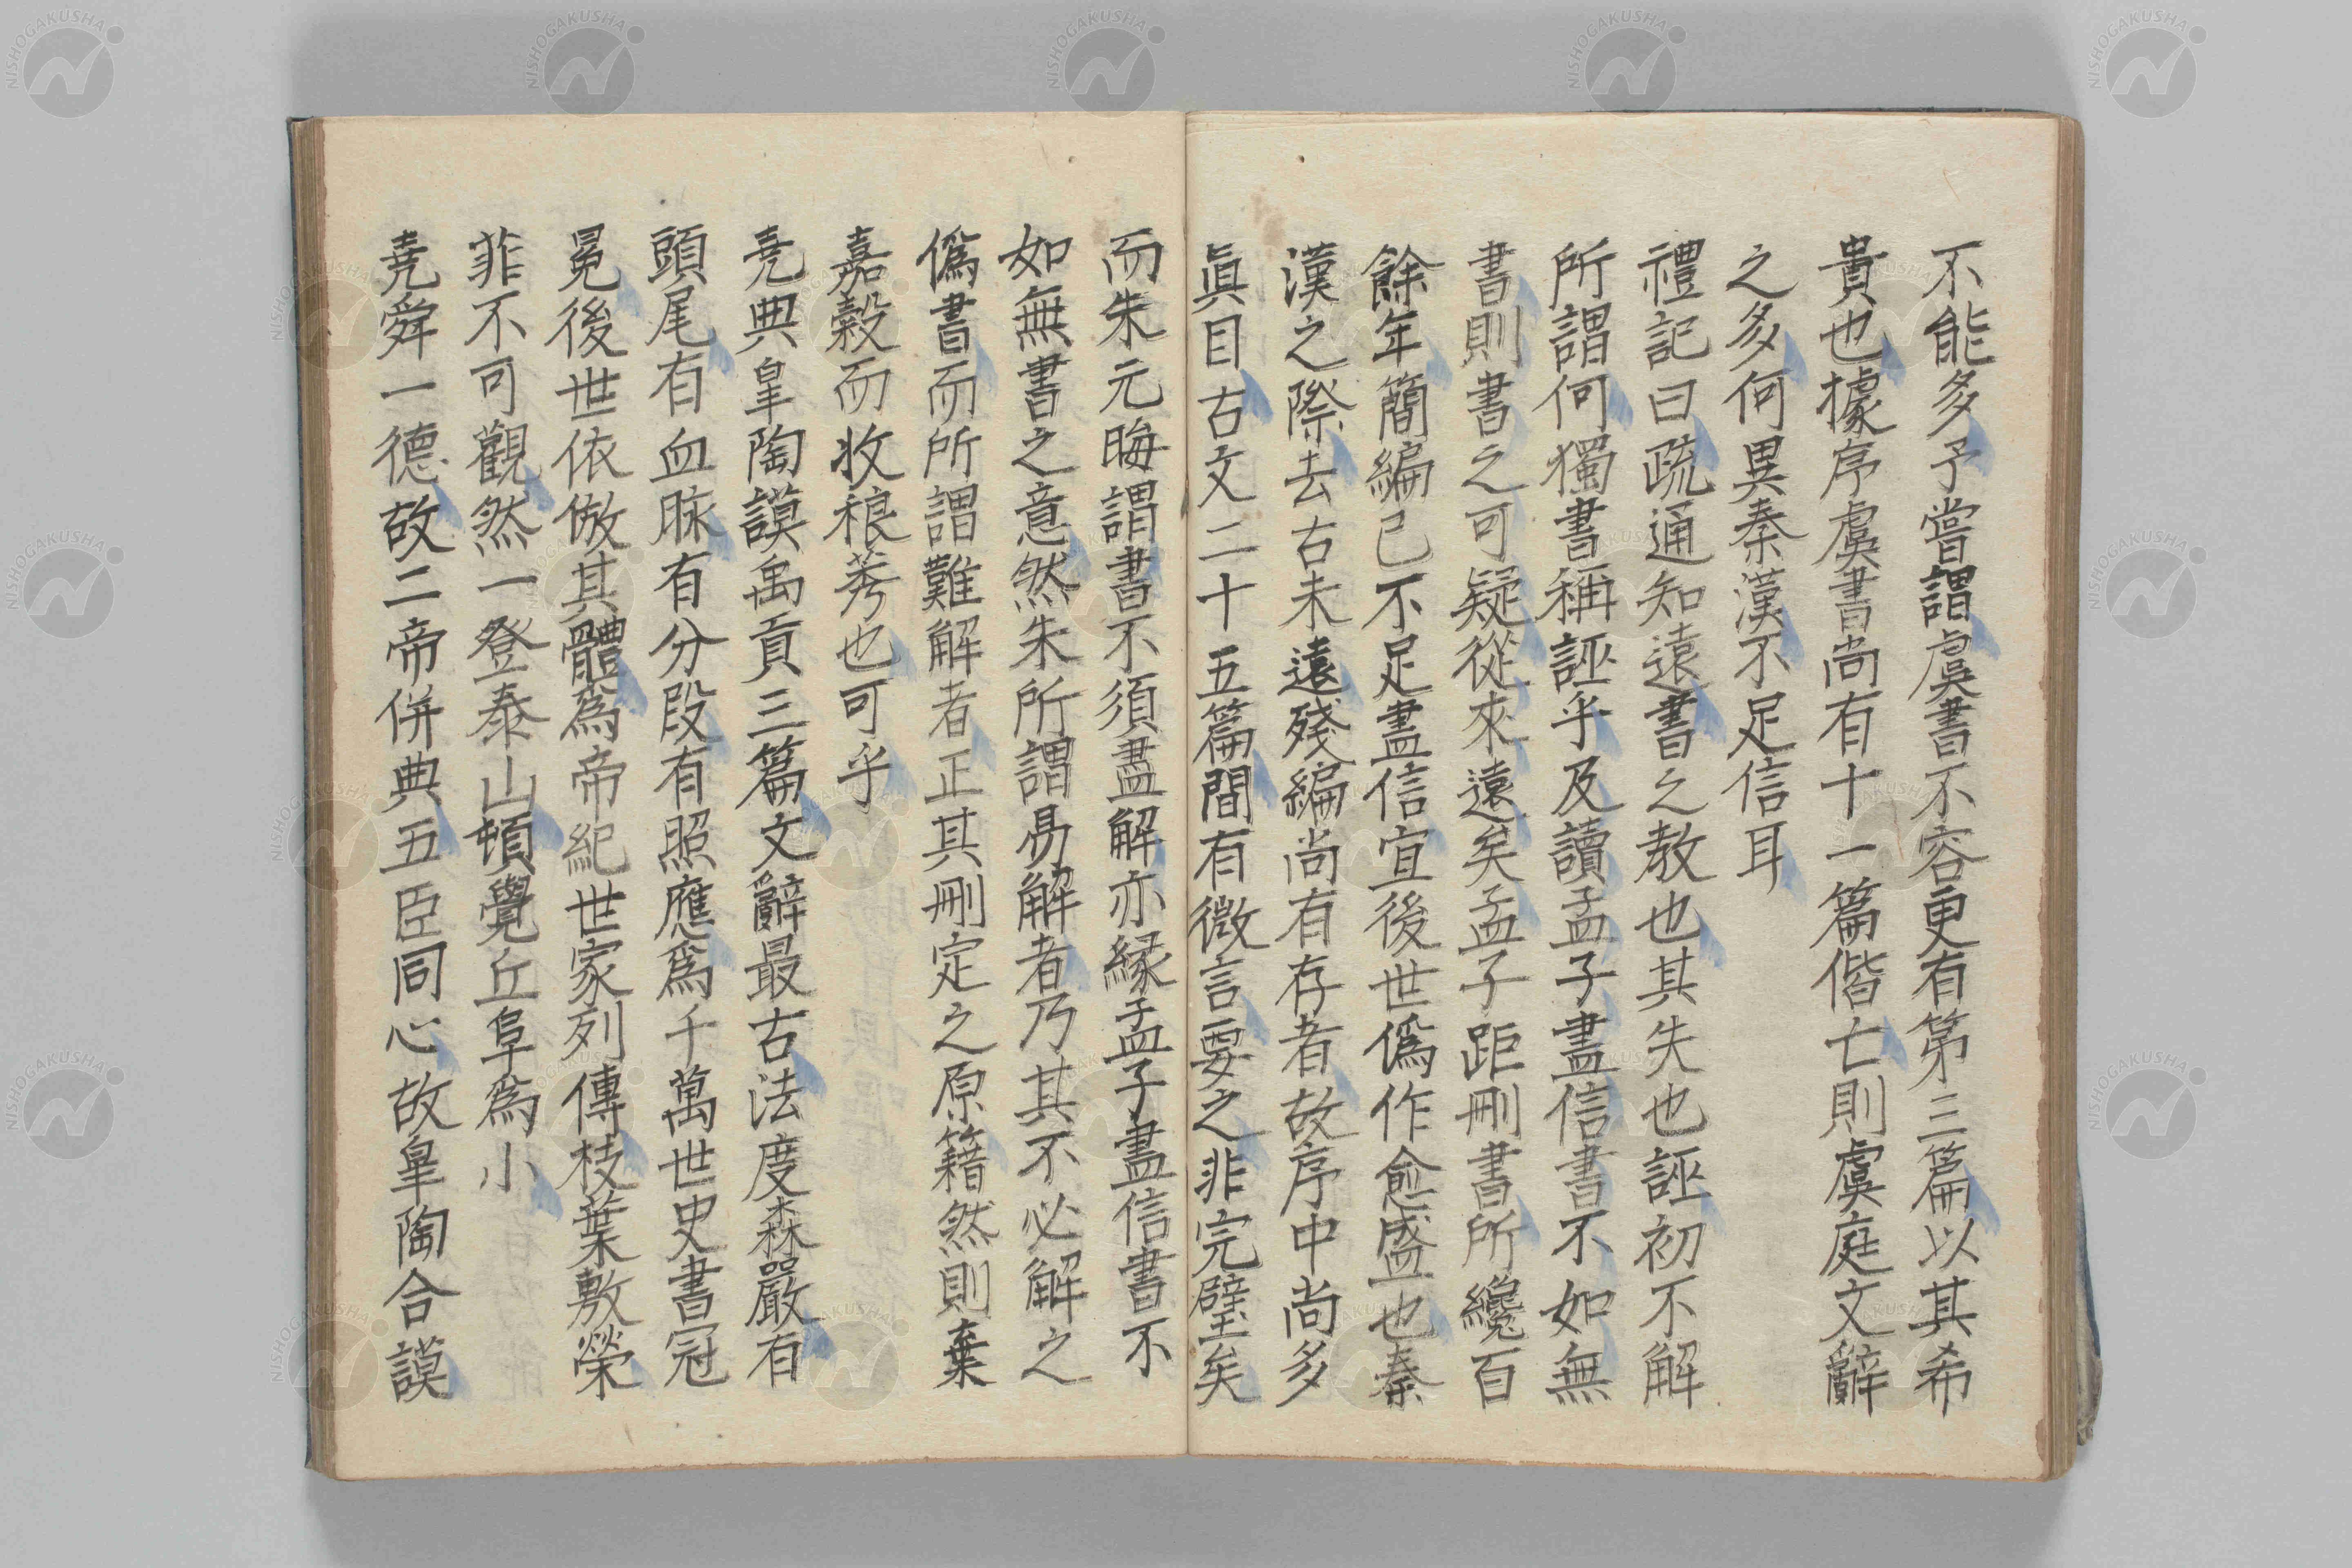 不能多予嘗謂虞書不容更有第三篇以其希
貴也據序虞書尚有十一篇偕亡則虞庭文辭
之多何異秦漢不足信耳
禮記曰疏通知遠書之教也其失也誣初不解
所謂何獨書稱誣乎及讀孟子盡信書不如無
書則書之可疑從來遠矣孟子距刪書所纔百
餘年簡編已不足盡信宜後世偽作愈盛也秦
漢之際去古未遠殘編尚有存者故序中尚多
眞目古文二十五篇間有微言要之非完璧矣
而朱元晦謂書不須盡解亦縁孟子盡信書不
如無書之意然朱所謂易解者乃其不必解之
僞書而所謂難解者正其刪定之原籍然則棄
嘉穀而收稂莠也可乎
堯典皐陶謨禹貢三篇文辭最古法度森嚴有
頭尾有血脉有分段有照應爲千萬世史書冠
冕後世依倣其體爲帝紀世家列傳枝葉敷榮
非不可觀然一登泰山頓覺丘阜爲小
堯舜一德故二帝併典五臣同心故皐陶合謨
NISHOGAKUSHA